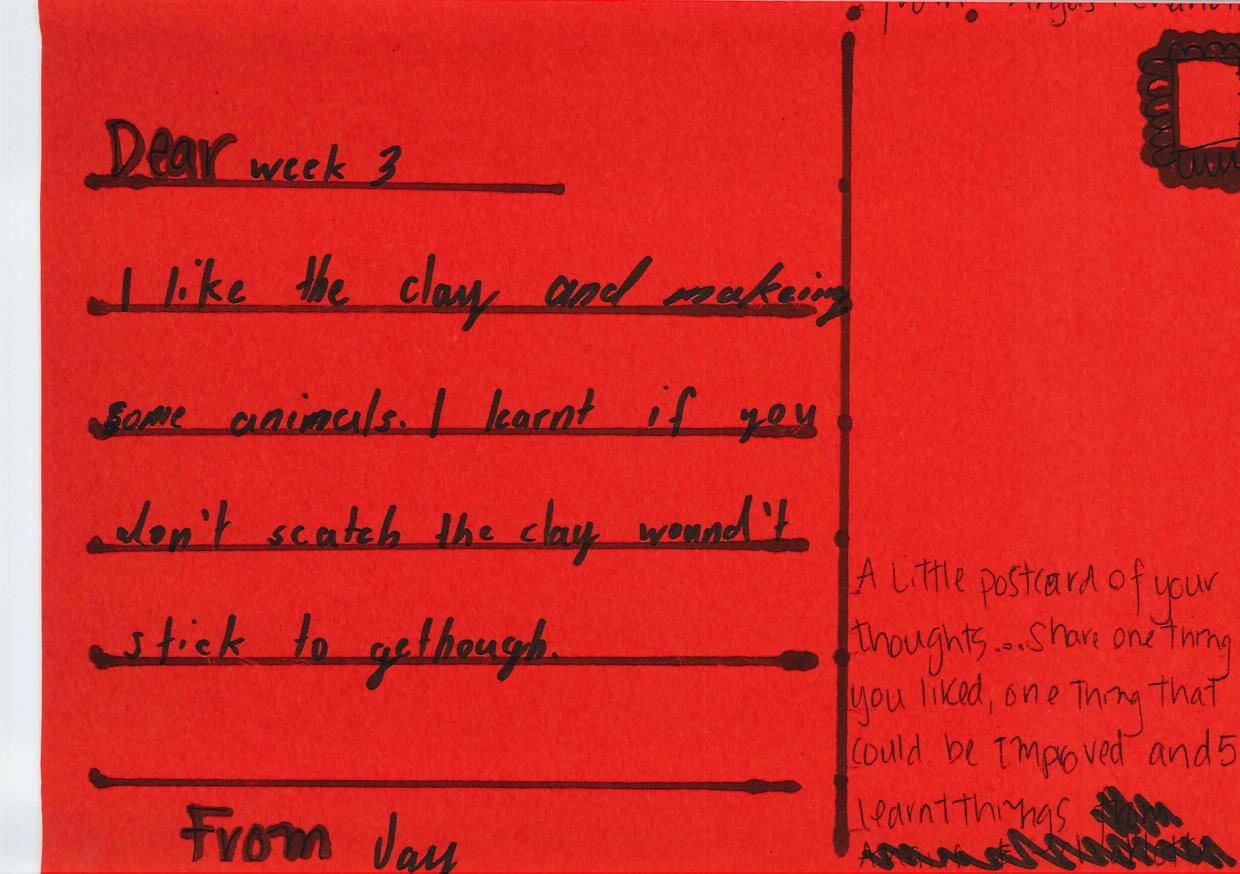 Dear week 3
I like the clay and makeing
some animals. I learnt if you
don't scatch the clay wound't
stick to gethough.
From Jay
A Little postcard of your
thoughts... Share one thing
you liked, one thing that
could be improved and 5
learnt things